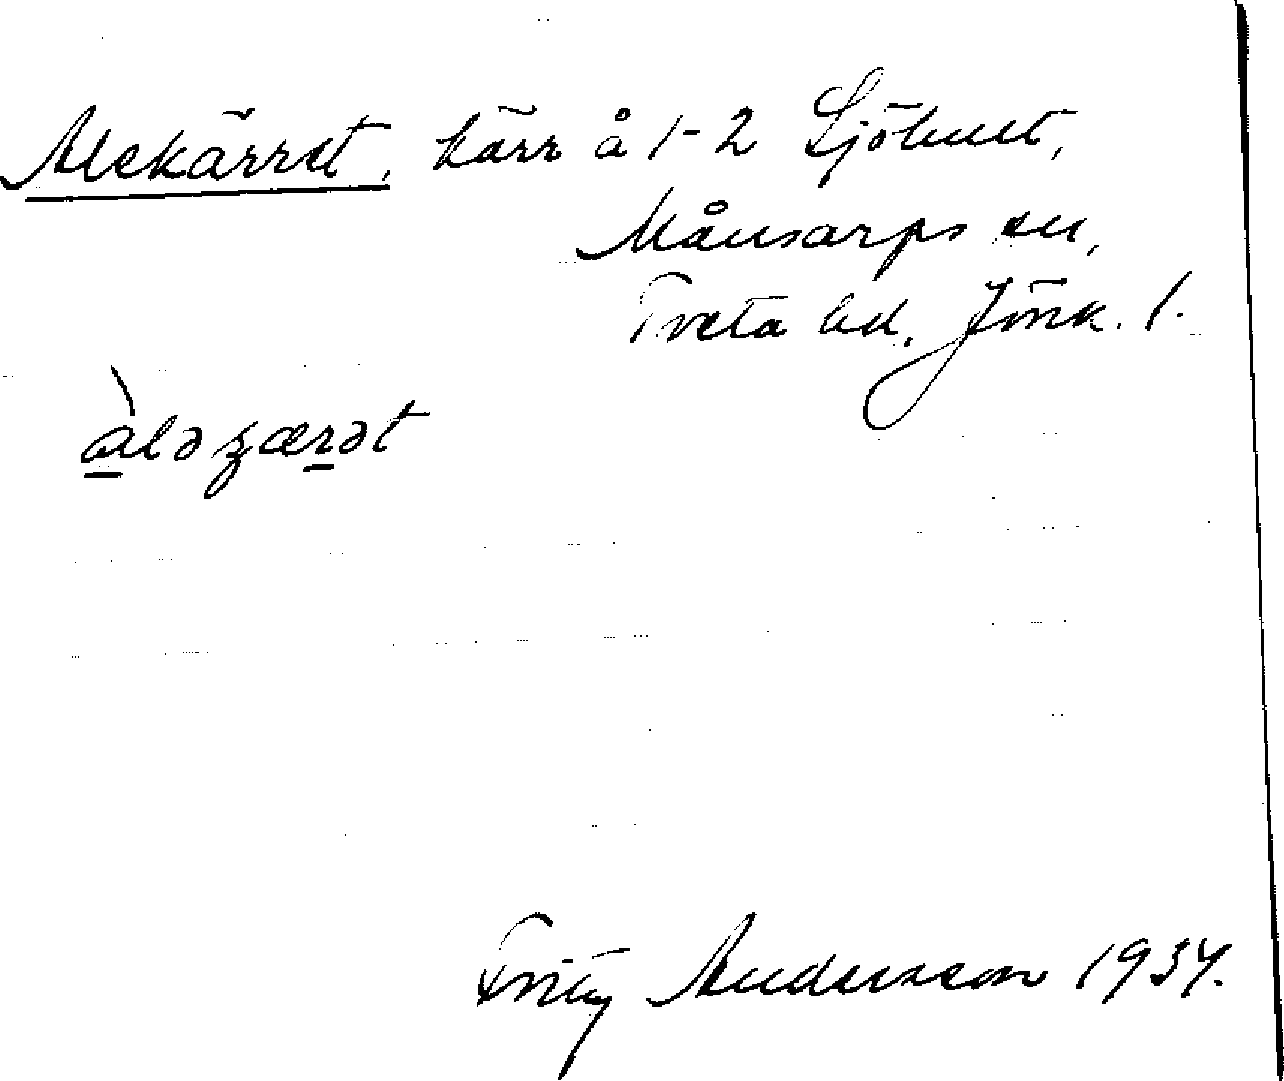 Alekärret, kärr å 1-2 Sjöhult,
Månsarps sn,
Tveta hd. Jönk. l.
àləʒærət
Fritz Andersson 1934.